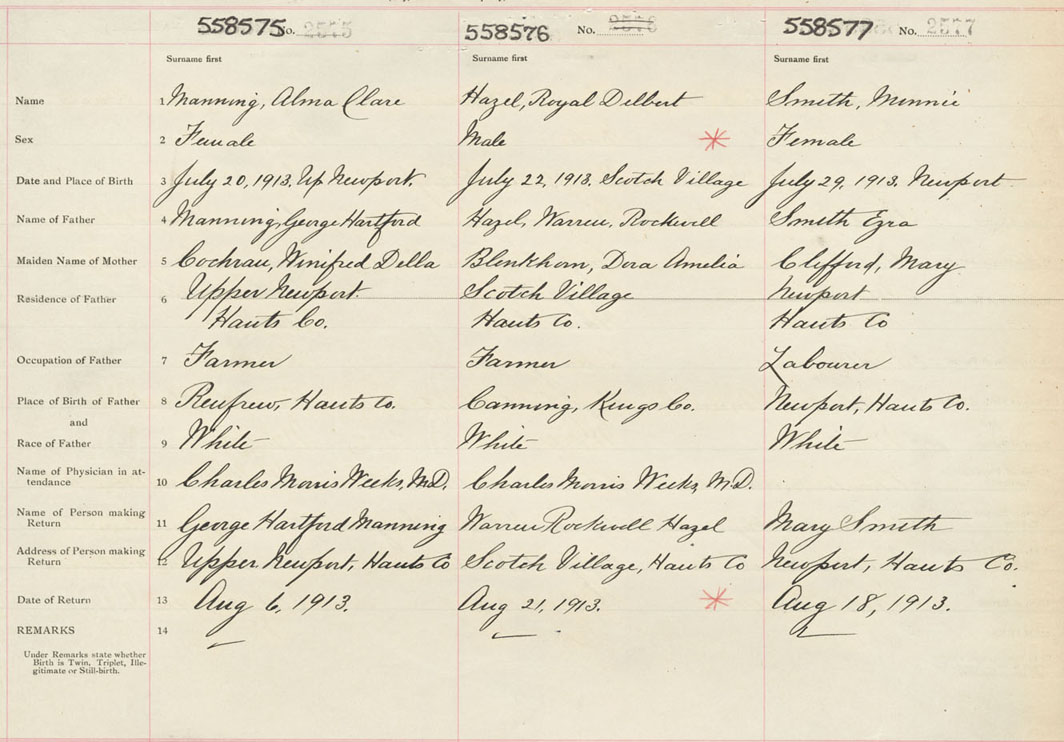 558575 No. 2575 558576 No. 2576 558577 No. 2577
Surname first Surname first Surname first
Name 1 Manning, Alma Clare Hazel, Royal Delbert Smith, Minnie
Sex 2 Female Male Female
Date and Place of Birth 3 July 20, 1913. Up Newport. July 22, 1913. Scotch Village July 29, 1913. Newport
Name of Father 4 Manning, George Hartford Hazel, Warren, Rockwell Smith Ezra
Maiden Name of Mother 5 Cochran, Winifred Della Blenkhorn, Dora Amelia Clifford, Mary
Residence of Father 6 Upper Newport. Scotch Village Newport
Hants Co. Hants Co. Hants Co
Occupation of Father 7 Farmer Farmer Labourer
Place of Birth of Father 8 Renfrew, Hants Co. Canning, Kings Co. Newport, Hants Co.
and
Race of Father 9 White White White
Name of Physician in at-
tendance 10 Charles Morris Weeks, M.D. Charles Morris Weeks, M.D.
Name of Person making
Return 11 George Hartford Manning Warren Rockwell Hazel Mary Smith
Address of Person making
Return 12 Upper Newport, Hants Co Scotch Village, Hants Co Newport, Hants Co.
Date of Return 13 Aug 6, 1913. Aug 21, 1913. Aug 18, 1913.
REMARKS 14
Under Remarks state whether
Birth is Twin, Triplet, Ille-
gitimate or Still-birth.